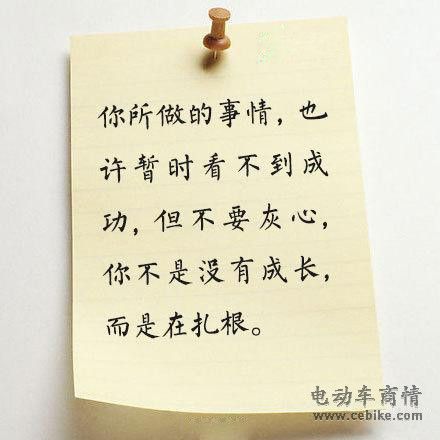 你所做的事情，也
许暂时看不到成
功，但不要灰心，
你不是没有成长，
而是在扎根。
电动车商情
www.cebike.com